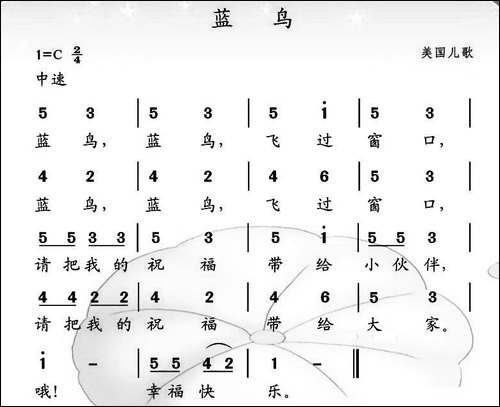 蓝 鸟
1=C 2/4 美国儿歌
中速
5 3 | 5 3 | 5 i | 5 3 |
蓝 鸟, 蓝 鸟, 飞 过 窗 口,
4 2 | 4 2 | 4 6 | 5 3 |
蓝 鸟, 蓝 鸟, 飞 过 窗 口,
5 5 3 3 | 5 3 | 5 i | 5 5 3 |
请 把 我 的 祝 福 带 给 小 伙 伴,
4 4 2 2 | 4 2 | 4 6 | 5 3 |
请 把 我 的 祝 福 带 给 大 家。
i – | 5 5 4 2 | 1 – ‖
哦! 幸 福 快 乐。